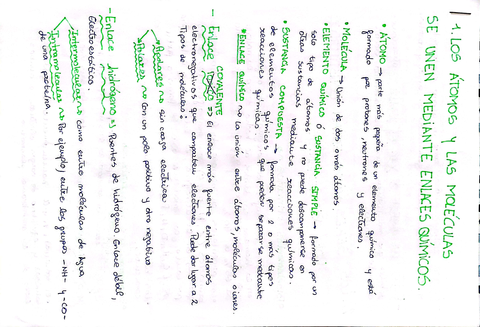 1. LOS ÁTOMOS Y LAS MOLÉCULAS
SE UNEN MEDIANTE ENLACES QUÍMICOS.
• ÁTOMO → parte más pequeña de un elemento químico y está
formado por protones, neutrones y electrones.
• MOLÉCULA → Unión de dos o más átomos.
• ELEMENTO QUÍMICO Ó SUSTANCIA SIMPLE → formado por un
solo tipo de átomos y no puede descomponerse en
otras sustancias mediante reacciones químicas.
• SUSTANCIA COMPUESTA → formada por 2 o más tipos
de elementos químicos que pueden separarse mediante
reacciones químicas.
• ENLACE QUÍMICO → la unión entre átomos, moléculas o iones.
- Enlace COVALENTE → El enlace más fuerte entre átomos
electronegativos que comparten electrones. Puede dar lugar a 2
Tipos de moléculas:
→ Apolares → sin carga eléctrica
→ Polares → con un polo positivo y otro negativo
- Enlace hidrógeno → Puentes de hidrógeno, Enlace débil,
Electroestático.
Intermoleculares → como entre moléculas de agua
Intramoleculares → Por ejemplo, entre los grupos -NH- y -CO-
de una proteína.